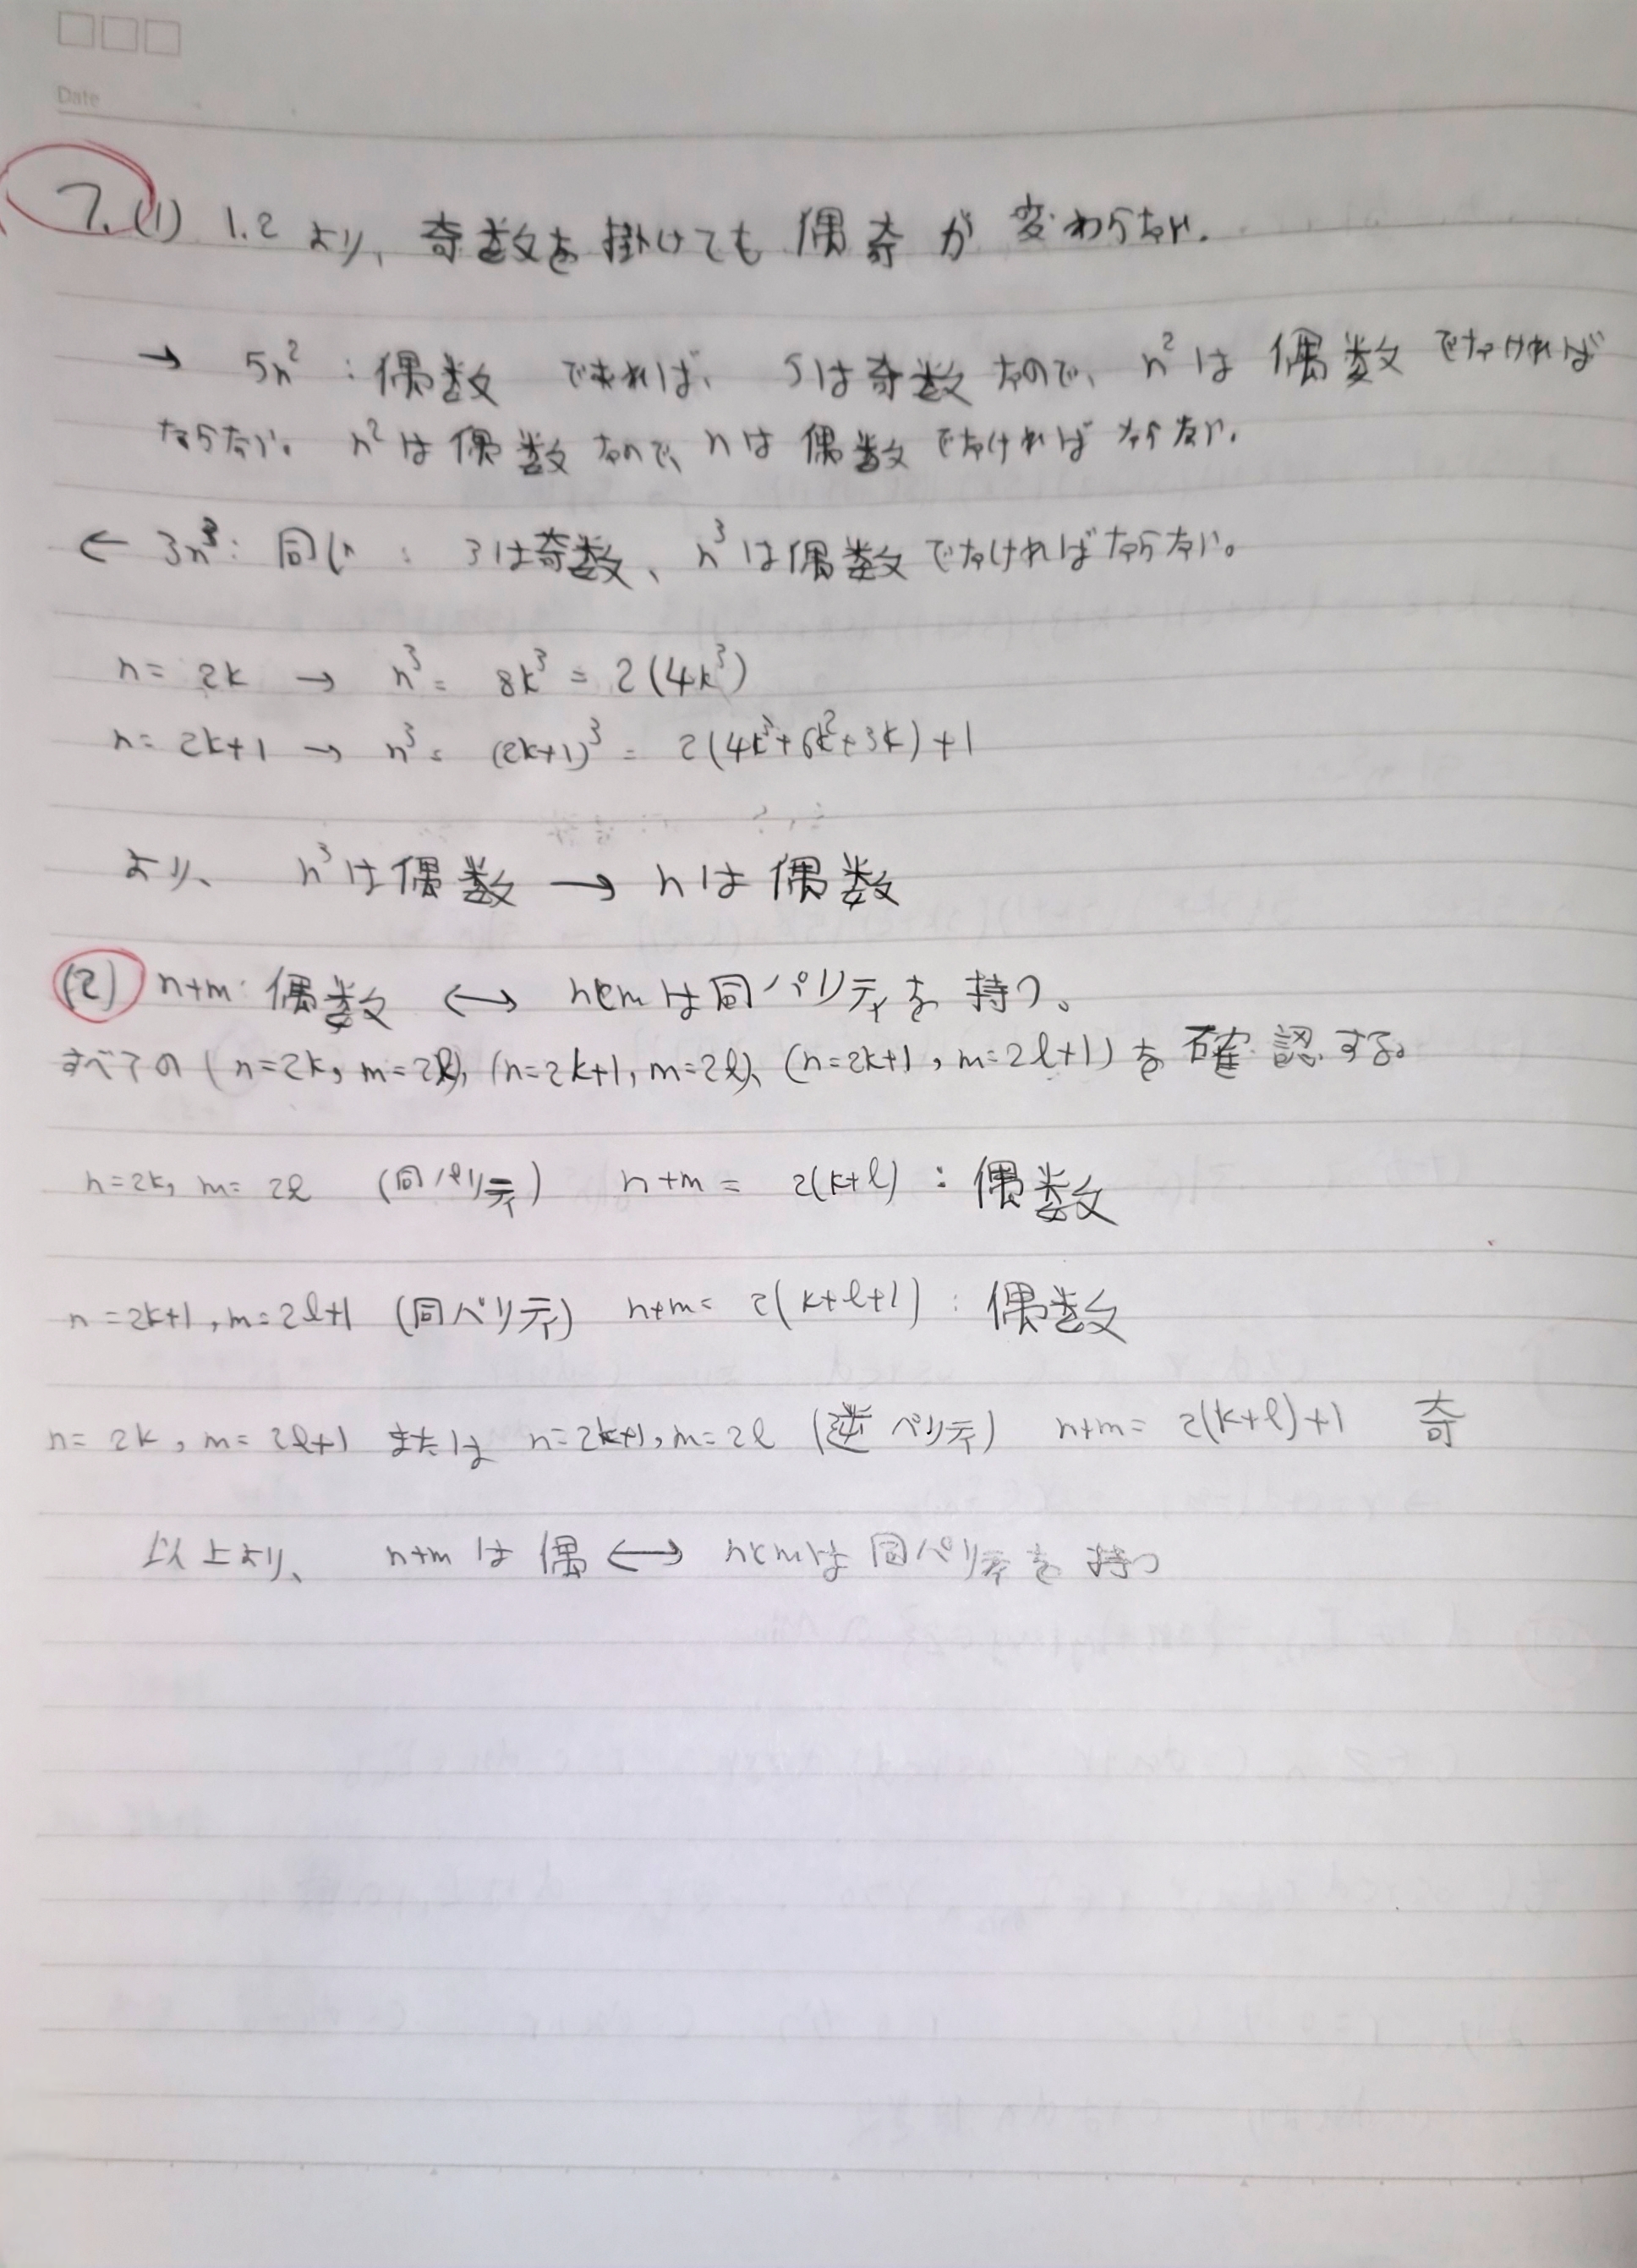 Date
7. (1) 1.2 より、奇数を掛けても偶奇が変わらない.
→ 5n² : 偶数 であれば、5は奇数なので、n²は偶数でなければ
ならない。n²は偶数なので、nは偶数でなければならない.
← 3n³: 同じ : 3は奇数、n³は偶数でなければならない。
n = 2k → n³ = 8k³ = 2(4k³)
n = 2k+1 → n³ = (2k+1)³ = 2(4k³+6k²+3k)+1
より、 n³は偶数 → nは偶数
(2) n+m: 偶数 ↔ nとmは同パリティを持つ。
すべての (n=2k, m=2l), (n=2k+1, m=2l), (n=2k+1, m=2l+1) を確認する。
n=2k, m=2l (同パリティ) n+m = 2(k+l) : 偶数
n=2k+1, m=2l+1 (同パリティ) n+m = 2(k+l+1) : 偶数
n=2k, m=2l+1 または n=2k+1, m=2l (逆パリティ) n+m = 2(k+l)+1 奇
以上より、 n+m は偶 ↔ nとmは同パリティを持つ